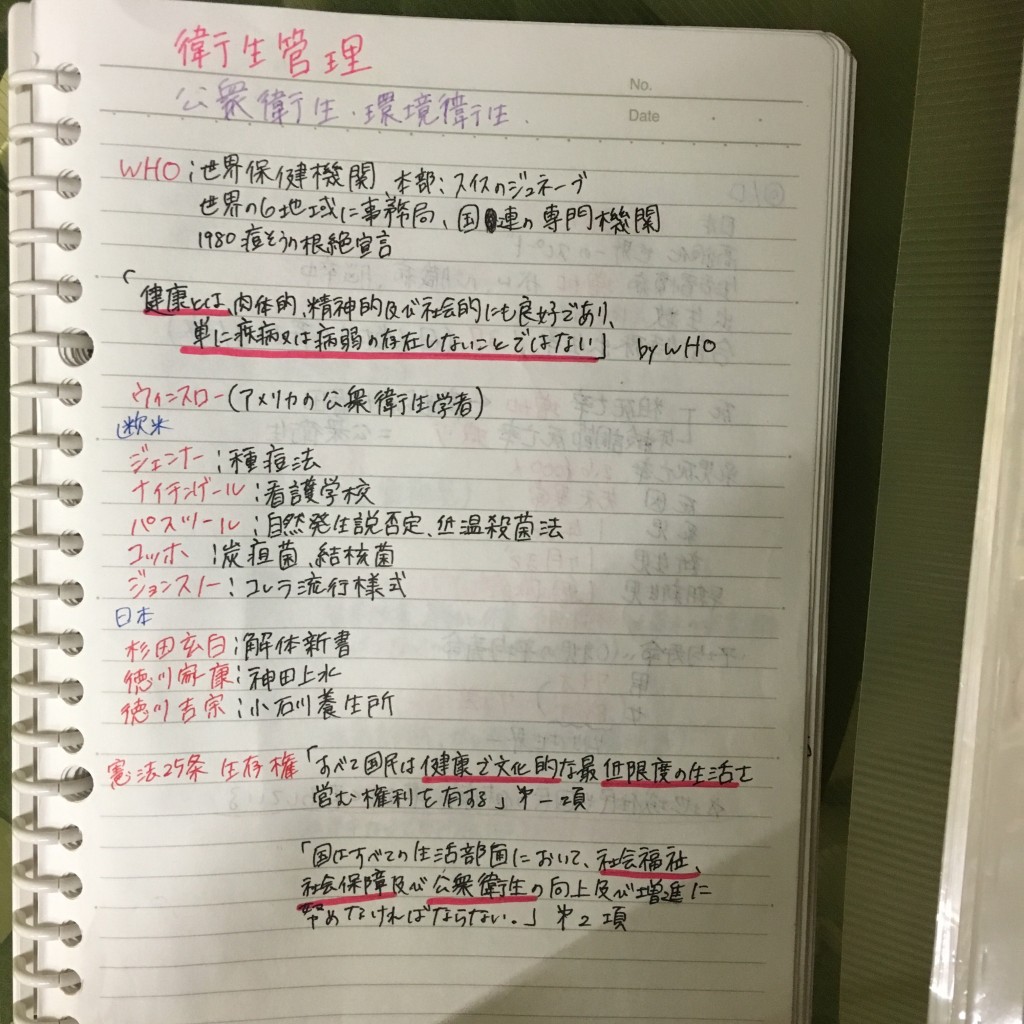 衛生管理
No.
公衆衛生・環境衛生.
Date
WHO:世界保健機関、本部:スイスのジュネーブ
世界の6地域に事務局、国連の専門機関
1980痘そうの根絶宣言
「健康とは、肉体的、精神的及び社会的にも良好であり、
単に疾病又は病弱の存在しないことではない」 by WHO
ウィンスロー(アメリカの公衆衛生学者)
欧米
ジェンナー:種痘法
ナイチンゲール:看護学校
パスツール:自然発生説否定、低温殺菌法
コッホ:炭疽菌、結核菌
ジョンスノー:コレラ流行様式
日本
杉田玄白:解体新書
徳川家康:神田上水
徳川吉宗:小石川養生所
憲法25条 生存権「すべて国民は健康で文化的な最低限度の生活を
営む権利を有する」第一項
「国はすべての生活部面において、社会福祉、
社会保障及び公衆衛生の向上及び増進に
努めなければならない。」 第2項